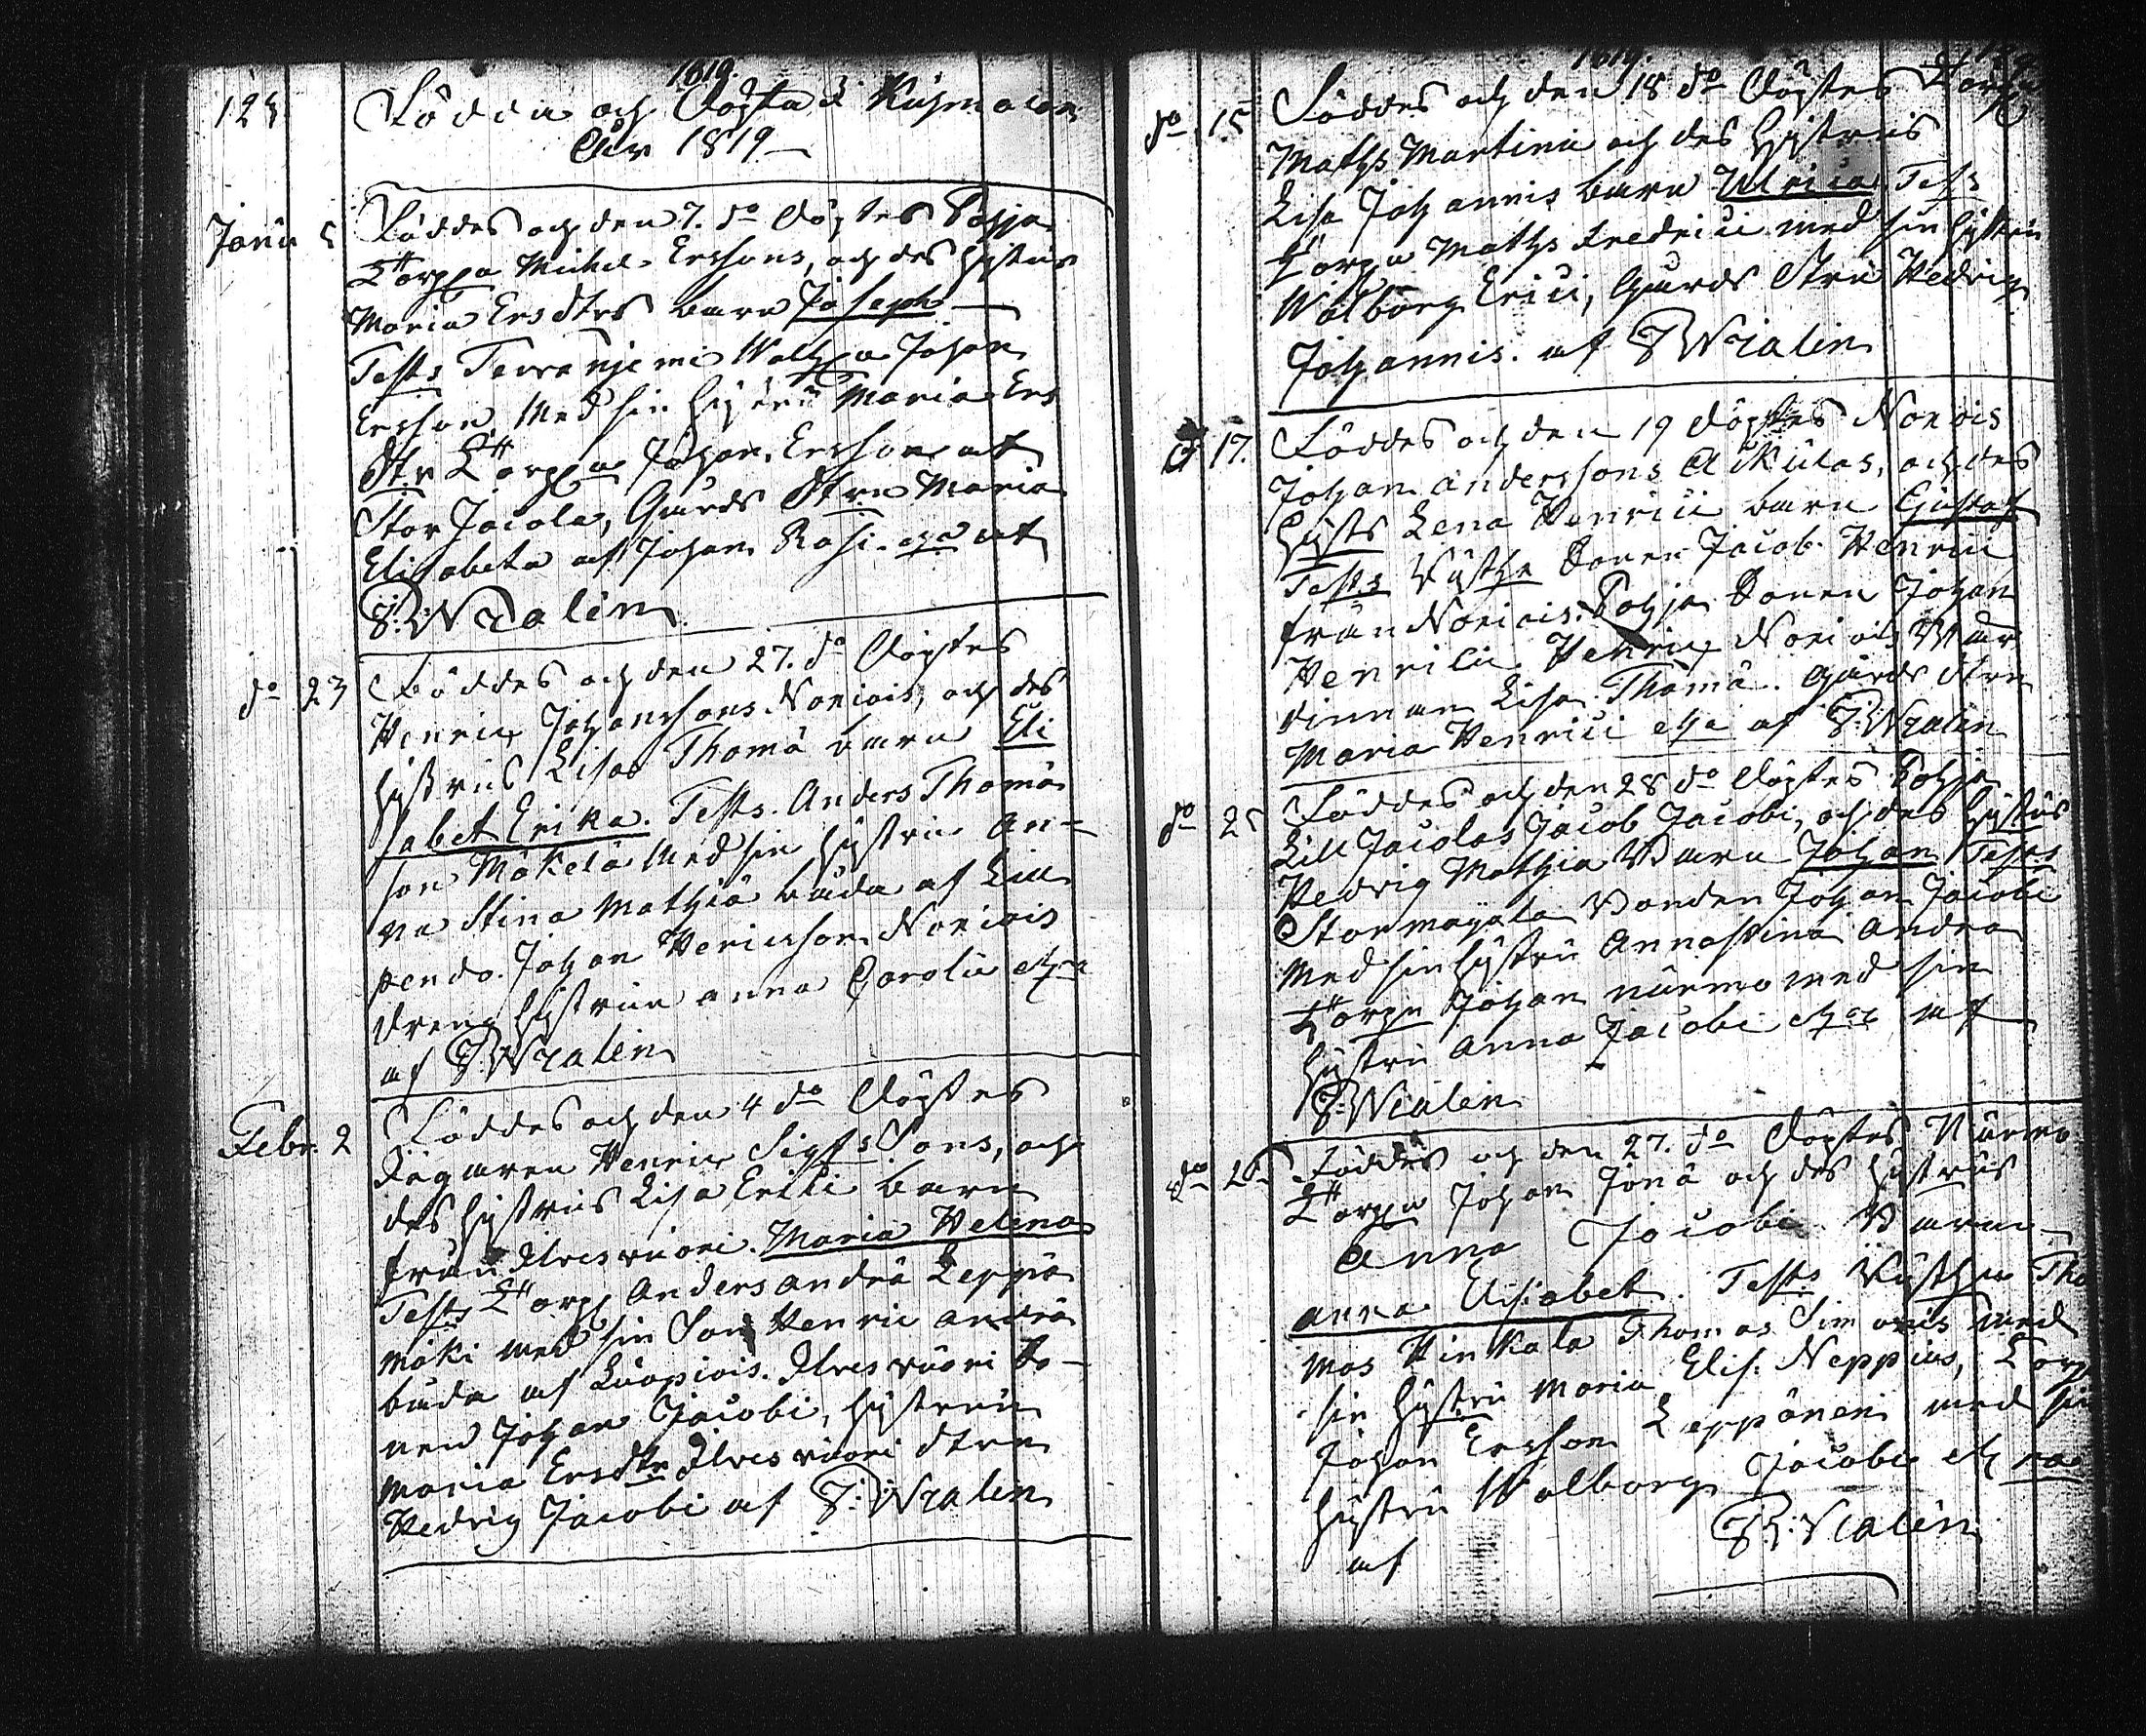 1819.
123
Föddu och Döpta i Kuhmalax
År 1819
Janu 5 Föddes och den 7. do Döptes Pohja
Torpa Michel Erssons, och des hystrus
Maria Ersdtrs barn Joseph
Tests Terranjemi Wälh Johan
Ersson Med sin hystru Maria Ers
dtr Torpa Johan Ersson af
Stor Jacola, Gårds Dtrn Maria
Elisabeta af Johan af
F. Wialén
do 23 Föddes och den 27. do Döptes
Henric Johanssons Noriois, och des
hystrus Lisas Thomä barn Eli
sabet Erika. Tests. Anders Thomä
son Mäkelä Med sin hystru An-
na Stina Mathiä båda af Lill
pendo. Johan Henricsson Noriois
dreng hystrun anna Caroli
af F. Wialén
Febr. 2 Föddes och den 4 do Döptes
Jägaren Henric Sigfs Sons, och
des hystrus Lisa Erici barn
från Ilvesvuori. Maria Helena
Tests Torp Anders andrä Leppä
mäki med sin Son Henric andrä
båda af Kuopiois. Ilvesvuori Bo-
nen Johan Jacobi, hystrun
Maria Ersdtr Ilvesvuori dtren
Hedvig Jacobi af F. Wialén
1819.
do 15 Föddes och den 18 do Döptes Torpa
Maths Martini och des hystrus
Lisa Johannis barn Ulrica Tests
Torpa Maths Fredrici med sin hystru
Walborg Erici, Gårds Dtrn Hedvig
Johannis. af F Wialén
17. Föddes och den 19 Döptes Noriois
Johan anderssons och des
hysts Lena Henrici barn Gustaf
Tests Bonen Jacob Henrici
från Noriois. Pohja Bonen Johan
Henrici Henric Noriois Mår
dinnan Lisa Thomä. Gårds dtrn
Maria Henrici af F. Wialén
do 25 Föddes och den 28 do Döptes Pohja
Lill Jacolas Jacob Jacobi, och des hystrus
Hedvig Mathia Barn Johan Tests
Stormayala Bonden Johan Jacobi
Med sin hystru Annastina Andra
Torpa Johan nurmo med sin
hystru anna Jacobi af
F. Wialén
do 26 Föddes och den 27. do Döptes Nurmo
Torpa Johan Jonä och des hystrus
Anna Jacobi Barn
anna Elisabet. Tests Tho
mas Hinkala Thomas Simonis med
sin hystru Maria Elis. Neppius, Torp
Johan Ersson Leppänen med sin
hystru Walborg Jacobi
af F. Wialén